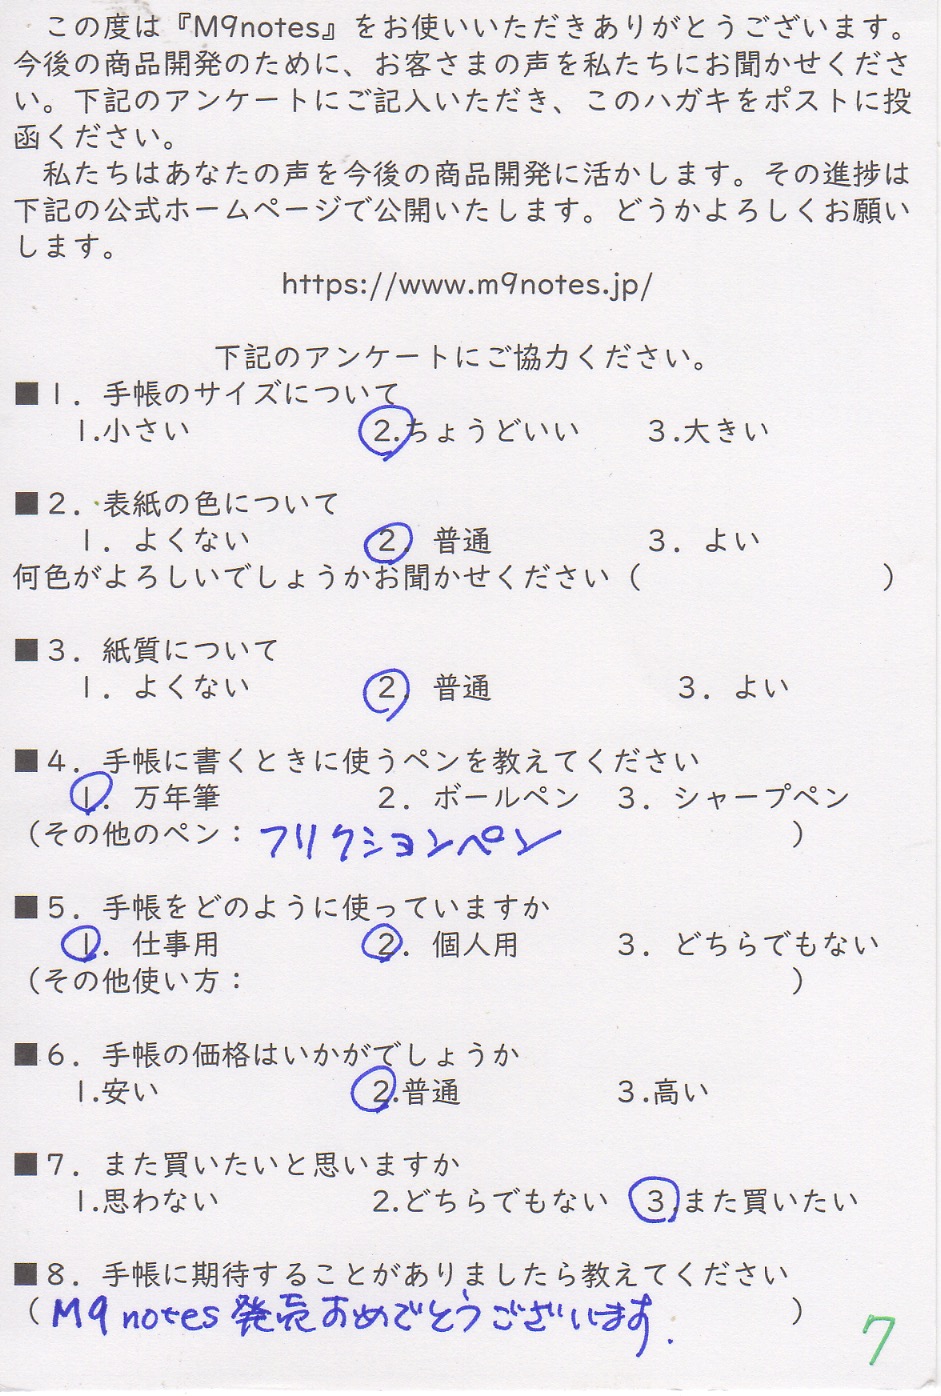 この度は『M9notes』をお使いいただきありがとうございます。
今後の商品開発のために、お客さまの声を私たちにお聞かせくださ
い。下記のアンケートにご記入いただき、このハガキをポストに投
函ください。
私たちはあなたの声を今後の商品開発に活かします。その進捗は
下記の公式ホームページで公開いたします。どうかよろしくお願い
します。
https://www.m9notes.jp/
下記のアンケートにご協力ください。
■1．手帳のサイズについて
1.小さい 2.ちょうどいい 3.大きい
■2．表紙の色について
1．よくない 2．普通 3．よい
何色がよろしいでしょうかお聞かせください（ ）
■3．紙質について
1．よくない 2．普通 3．よい
■4．手帳に書くときに使うペンを教えてください
1．万年筆 2．ボールペン 3．シャープペン
（その他のペン：フリクションペン ）
■5．手帳をどのように使っていますか
1．仕事用 2．個人用 3．どちらでもない
（その他使い方： ）
■6．手帳の価格はいかがでしょうか
1.安い 2.普通 3.高い
■7．また買いたいと思いますか
1.思わない 2.どちらでもない 3.また買いたい
■8．手帳に期待することがありましたら教えてください
（M9notes 発売おめでとうございます. ）
7